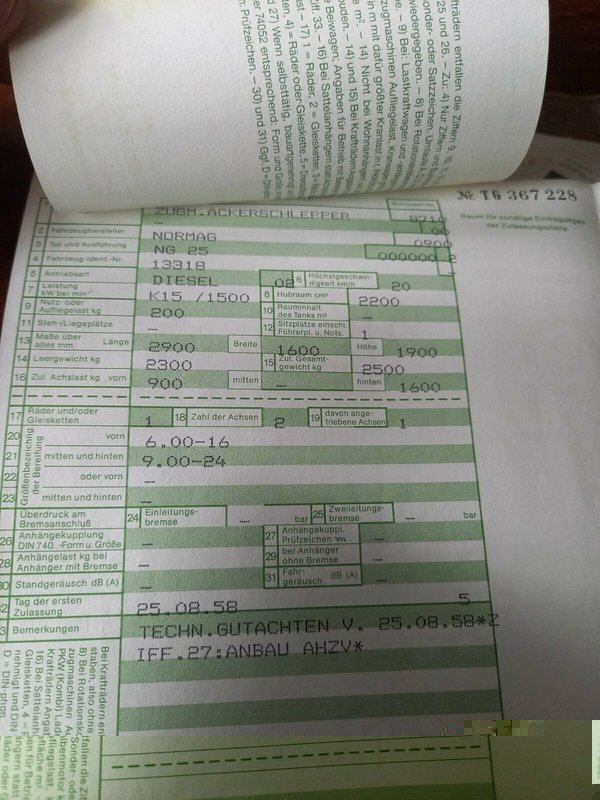 aftfrädern entfallen die Ziffern 9, 10, 11
25 und 26. – Zu: 4) Nur Ziffern und
onder- oder Satzzeichen. Umlaute
wiedergegeben. – 8) Bei Rotations
e. – 9) Bei: Lastkraftwagen und
zugmaschinen Aufliegelast, Kran
in m mit dafür größter Kranlast in t
e m². – 14) Nicht bei Wohnanhänger
ouden. – 14) und 15) Bei Krafträdern
e Beiwagen; Angaben für Betrieb mit
Ziff. 33. – 16) Bei Sattelanhängern
ast – 17) 1 = Räder, 2 = Gleisketten, 3 =
ten, 4) = Räder oder Gleiskette, 5 =
d 27) Wenn selbsttätig, bauartgenehmigt
er 74052 entsprechend: Form und Größe
n: Prüfzeichen. – 30) und 31) Ggf. D = DIN-p
Nr. T6 367 228
Raum für sonstige Eintragungen
der Zulassungsstelle
Schlüssel-Nr.
ZUGM.ACKERSCHLEPPER 8710
00
2 Fahrzeughersteller NORMAG 0900
3 Typ und Ausführung NG 25 000000 2
4 Fahrzeug-Ident.-Nr. 13318
5 Antriebsart DIESEL 02 6 Höchstgeschwin-digkeit km/h 20
7 Leistung kW bei min⁻¹ K15 /1500 8 Hubraum cm³ 2200
9 Nutz- oder Aufliegelast kg 200 10 Rauminhalt des Tanks m³ –
11 Steh-/Liegeplätze – 12 Sitzplätze einschl. Führerpl. u. Nots. 1
13 Maße über alles mm Länge 2900 Breite 1600 Höhe 1900
14 Leergewicht kg 2300 15 Zul. Gesamt-gewicht kg 2500
16 Zul. Achslast kg vorn 900 mitten – hinten 1600
17 Räder und/oder Gleisketten 1 18 Zahl der Achsen 2 19 davon ange-triebene Achsen 1
Größenbezeichng. der Bereifung
20 vorn 6.00-16
21 mitten und hinten 9.00-24
22 oder vorn –
23 mitten und hinten –
Überdruck am Bremsanschluß 24 Einleitungs-bremse – bar 25 Zweileitungs-bremse – bar
26 Anhängekupplung DIN 740..-Form u. Größe – 27 Anhängekuppl. Prüfzeichen –
28 Anhängelast kg bei Anhänger mit Bremse – 29 bei Anhänger ohne Bremse –
30 Standgeräusch dB (A) – 31 Fahr-geräusch dB (A) –
32 Tag der ersten Zulassung 25.08.58 5
33 Bemerkungen TECHN.GUTACHTEN V. 25.08.58*Z
IFF.27:ANBAU AHZV*
Bei Krafträdern en
staben, also ohne
8) Bei Rotationsko
zugmaschinen
PKW (Kombi) Lad
Krafträdern Angab
16) Bei Sattelanh
Gleisketten, 4 =
nehmigt und DIN
D = DIN-phon.